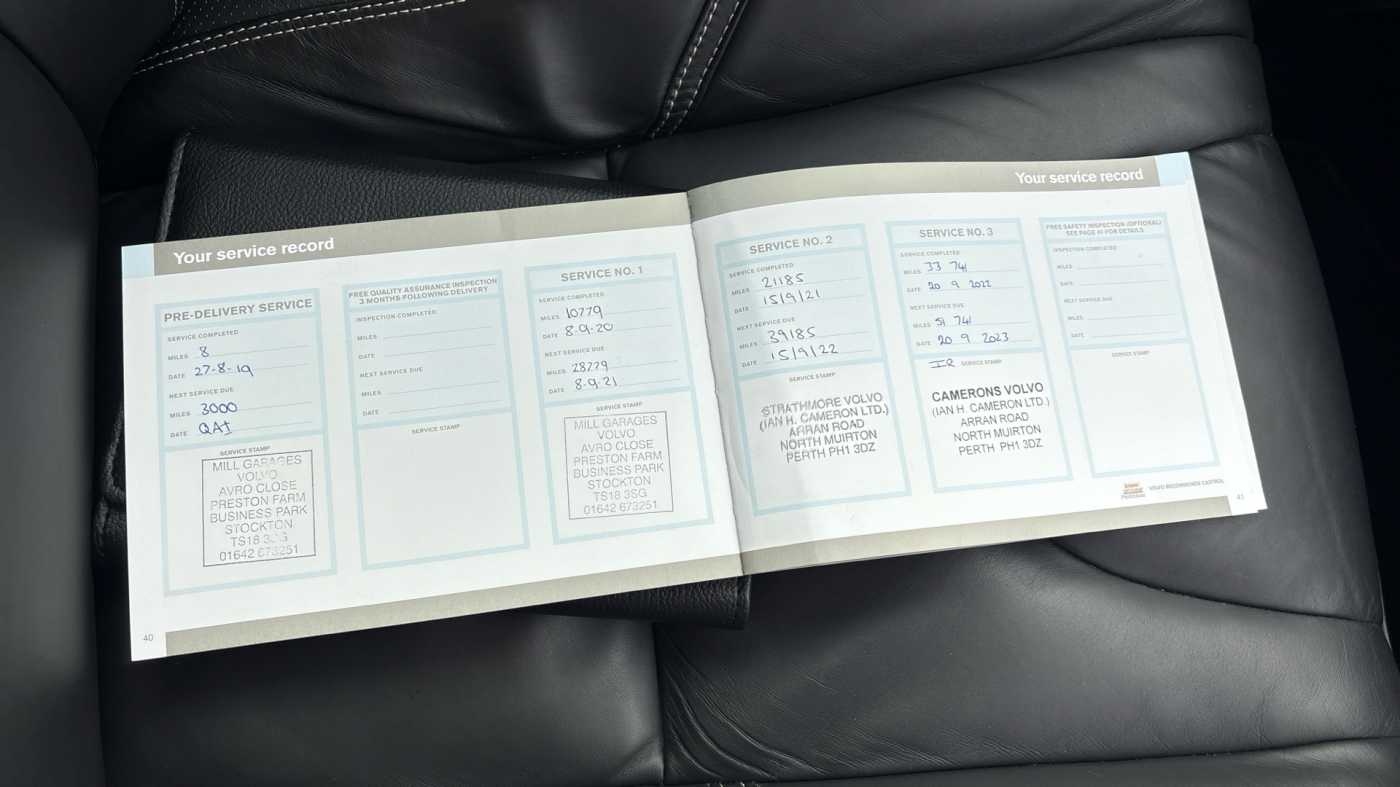 Your service record
PRE-DELIVERY SERVICE
SERVICE COMPLETED
MILES 8
DATE 27-8-19
NEXT SERVICE DUE
MILES 3000
DATE QAI
SERVICE STAMP
MILL GARAGES
VOLVO
AVRO CLOSE
PRESTON FARM
BUSINESS PARK
STOCKTON
TS18 3SG
01642 673251
FREE QUALITY ASSURANCE INSPECTION
3 MONTHS FOLLOWING DELIVERY
INSPECTION COMPLETED
MILES
DATE
NEXT SERVICE DUE
MILES
DATE
SERVICE STAMP
SERVICE NO. 1
SERVICE COMPLETED
MILES 10779
DATE 8-9-20
NEXT SERVICE DUE
MILES 28779
DATE 8-9-21
SERVICE STAMP
MILL GARAGES
VOLVO
AVRO CLOSE
PRESTON FARM
BUSINESS PARK
STOCKTON
TS18 3SG
01642 673251
40
Your service record
SERVICE NO. 2
SERVICE COMPLETED
MILES 21185
DATE 15/9/21
NEXT SERVICE DUE
MILES 39185
DATE 15/9/22
SERVICE STAMP
STRATHMORE VOLVO
(IAN H. CAMERON LTD.)
ARRAN ROAD
NORTH MUIRTON
PERTH PH1 3DZ
SERVICE NO. 3
SERVICE COMPLETED
MILES 33 741
DATE 20 9 2022
NEXT SERVICE DUE
MILES 51 741
DATE 20 9 2023
IR SERVICE STAMP
CAMERONS VOLVO
(IAN H. CAMERON LTD.)
ARRAN ROAD
NORTH MUIRTON
PERTH PH1 3DZ
FREE SAFETY INSPECTION (OPTIONAL)
SEE PAGE 61 FOR DETAILS
INSPECTION COMPLETED
MILES
DATE
NEXT SERVICE DUE
MILES
DATE
SERVICE STAMP
VOLVO RECOMMENDS CASTROL
41